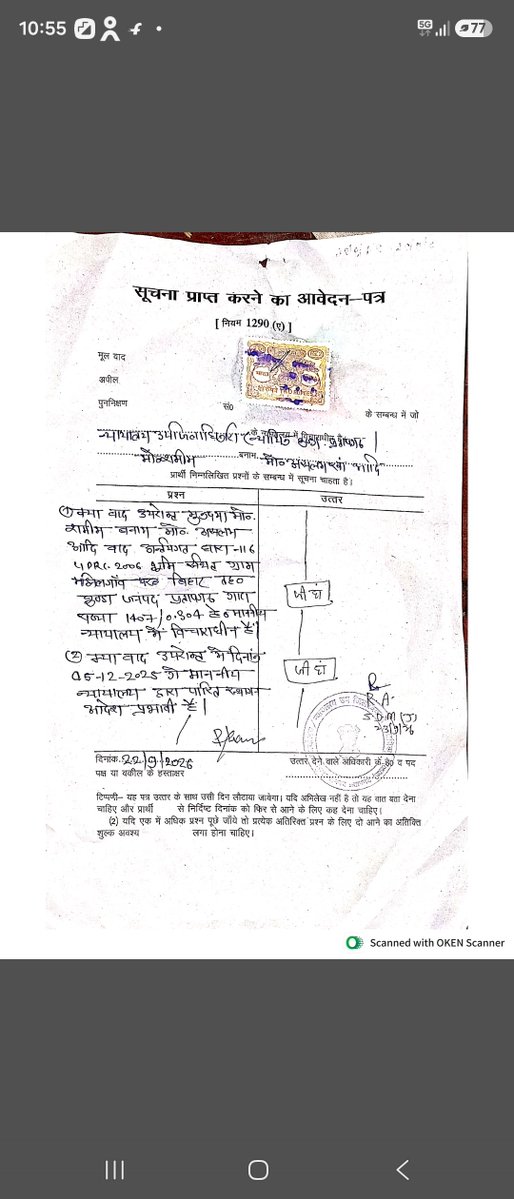 10:55
5G
77
सूचना प्राप्त करने का आवेदन–पत्र
[ नियम 1290 (ए) ]
मूल वाद
अपील
पुननिक्षण सं० के सम्बन्ध में जो
न्यायालय उपजिलाधिकारी
मो० शमीम बनाम मो० असलम खां आदि
प्रार्थी मिम्नलिखित प्रश्नों के सम्बन्ध में सूचना चाहता है।
प्रश्न उत्तर
(1) क्या वाद उपरोक्त मुकदमा मो०
शमीम बनाम मो० असलम
आदि वाद अन्तर्गत धारा-116
UPRC. 2006 भूमि स्थित ग्राम
बिहार तह०
कुण्डा जनपद प्रतापगढ़ गाटा
संख्या 1407/0.304 हे० माननीय
न्यायालय में विचाराधीन है।
जी हां
(2) क्या वाद उपरोक्त में दिनांक
05-12-2025 को माननीय
न्यायालय द्वारा पारित स्थगन
आदेश प्रभावी है।
जी हां
R.A.
SDM (J)
23/9/26
दिनांक. 22/9/2026 उत्तर देने वाले अधिकारी के ह० व पद
पक्ष या वकील के हस्ताक्षर
टिप्पणी– यह पत्र उत्तर के साथ उसी दिन लौटाया जावेगा। यदि अभिलेख नहीं है तो यह बात बता देना
चाहिए और प्रार्थी से निर्दिष्ट दिनांक को फिर से आने के लिए कह देना चाहिए।
(2) यदि एक में अधिक प्रश्न पूछे जाँये तो प्रत्येक अतिरिक्त प्रश्न के लिए दो आने का अतिक्ति
शुल्क अवश्य लगा होना चाहिए।
Scanned with OKEN Scanner